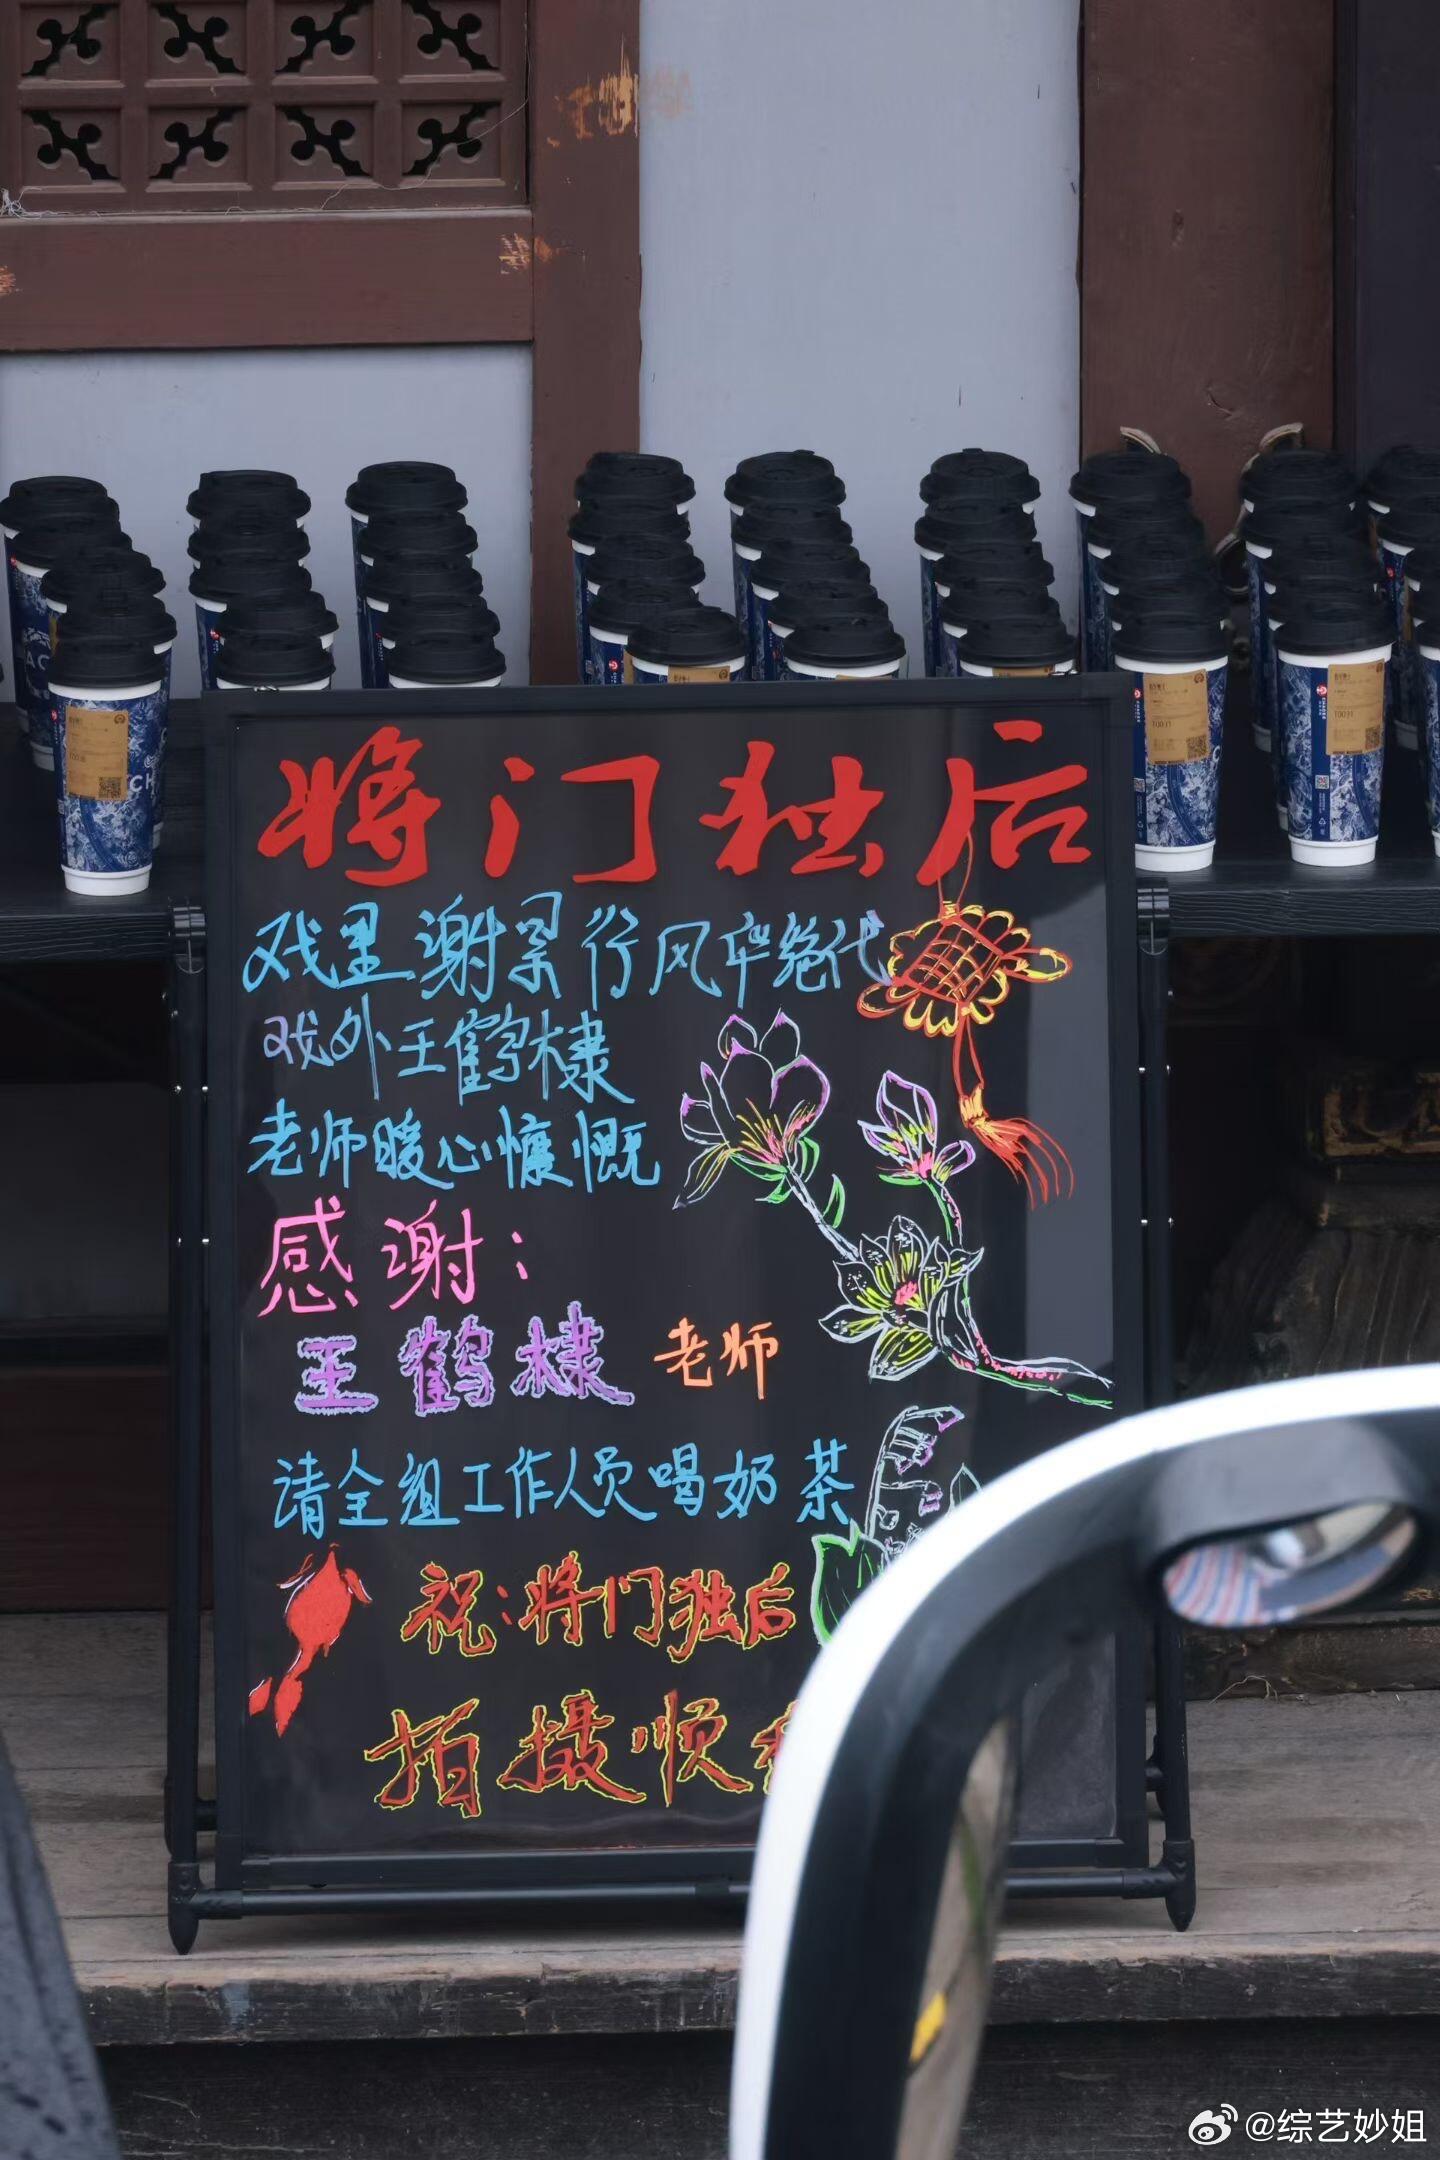 将门独后
戏里谢景行风华绝代
戏外王鹤棣
老师暖心慷慨
感谢：
王鹤棣 老师
请全组工作人员喝奶茶
祝：将门独后
拍摄顺
@综艺妙姐